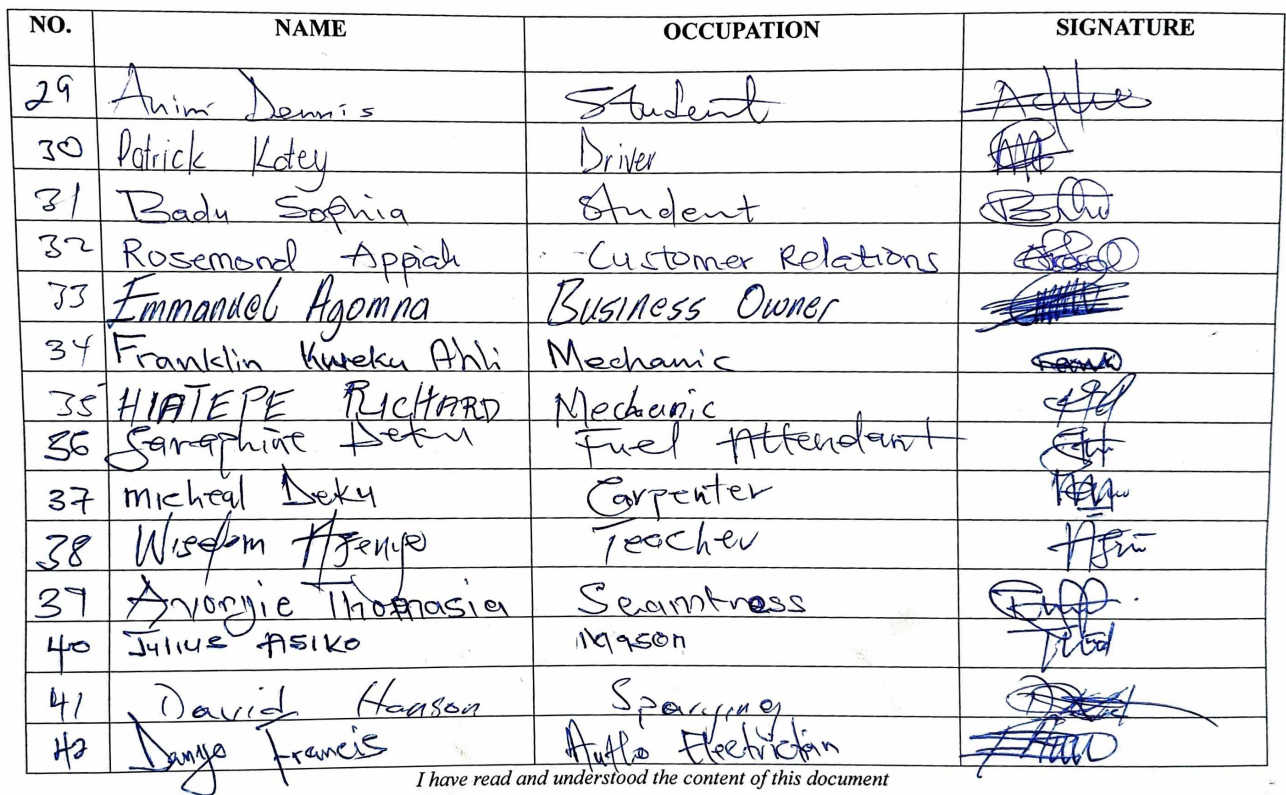 NO. NAME OCCUPATION SIGNATURE
29 Animi Dennis Student
30 Patrick Kotey Driver
31 Badu Sophia Student
32 Rosemond Appiah Customer Relations
33 Emmanuel Agomna Business Owner
34 Franklin Kweku Ahli Mechanic
35 HIATEPE RICHARD Mechanic
36 Seraphine Deku Fuel Attendant
37 Micheal Deku Carpenter
38 Wisdom Afenyo Teacher
39 Avorgie Thomasia Seamtress
40 Julius Asiko Mason
41 David Hanson Sparying
42 Danyo Francis Autho Electrictian
I have read and understood the content of this document